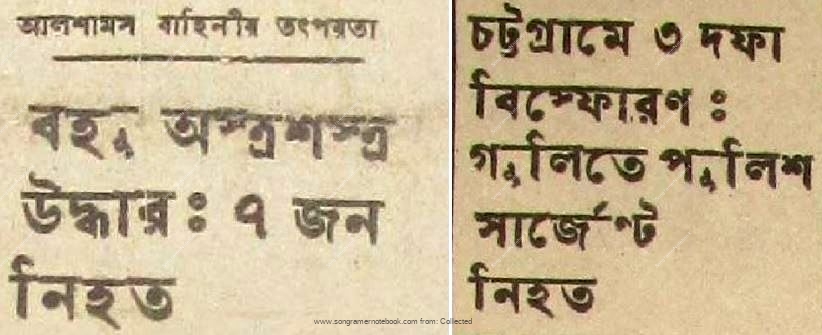 আলশামস বাহিনীর তৎপরতা
বহু অস্ত্রশস্ত্র
উদ্ধার : ৭ জন
নিহত
চট্টগ্রামে ৩ দফা
বিস্ফোরণ :
গুলিতে পুলিশ
সার্জেণ্ট
নিহত
www.songramernotebook.com from: Collected